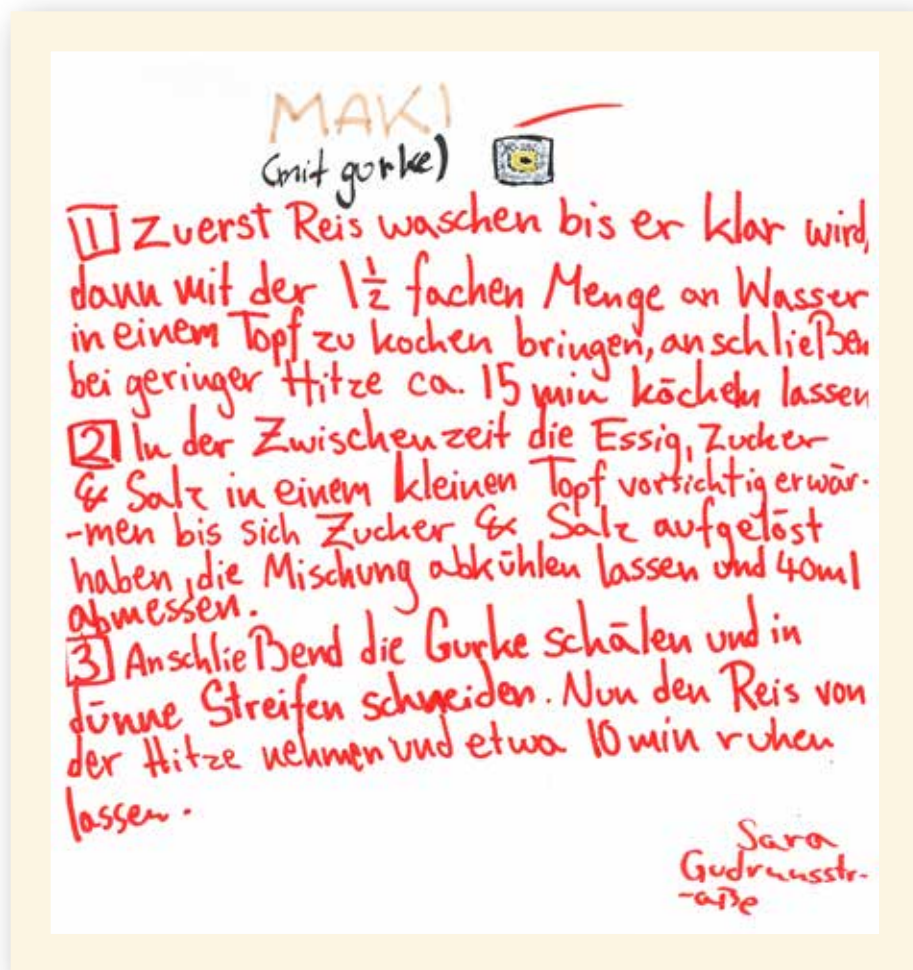 MAKI
(mit gurke)
1 Zuerst Reis waschen bis er klar wird,
dann mit der 1 1/2 fachen Menge an Wasser
in einem Topf zu kochen bringen, anschließen
bei geringer Hitze ca. 15 min köcheln lassen
2 In der Zwischenzeit die Essig, Zucker
& Salz in einem kleinen Topf vorsichtig erwär-
-men bis sich Zucker & Salz aufgelöst
haben, die Mischung abkühlen lassen und 40ml
abmessen.
3 Anschließend die Gurke schälen und in
dünne Streifen schneiden. Nun den Reis von
der Hitze nehmen und etwa 10 min ruhen
lassen.
Sara
Gudrunsstr-
-aße